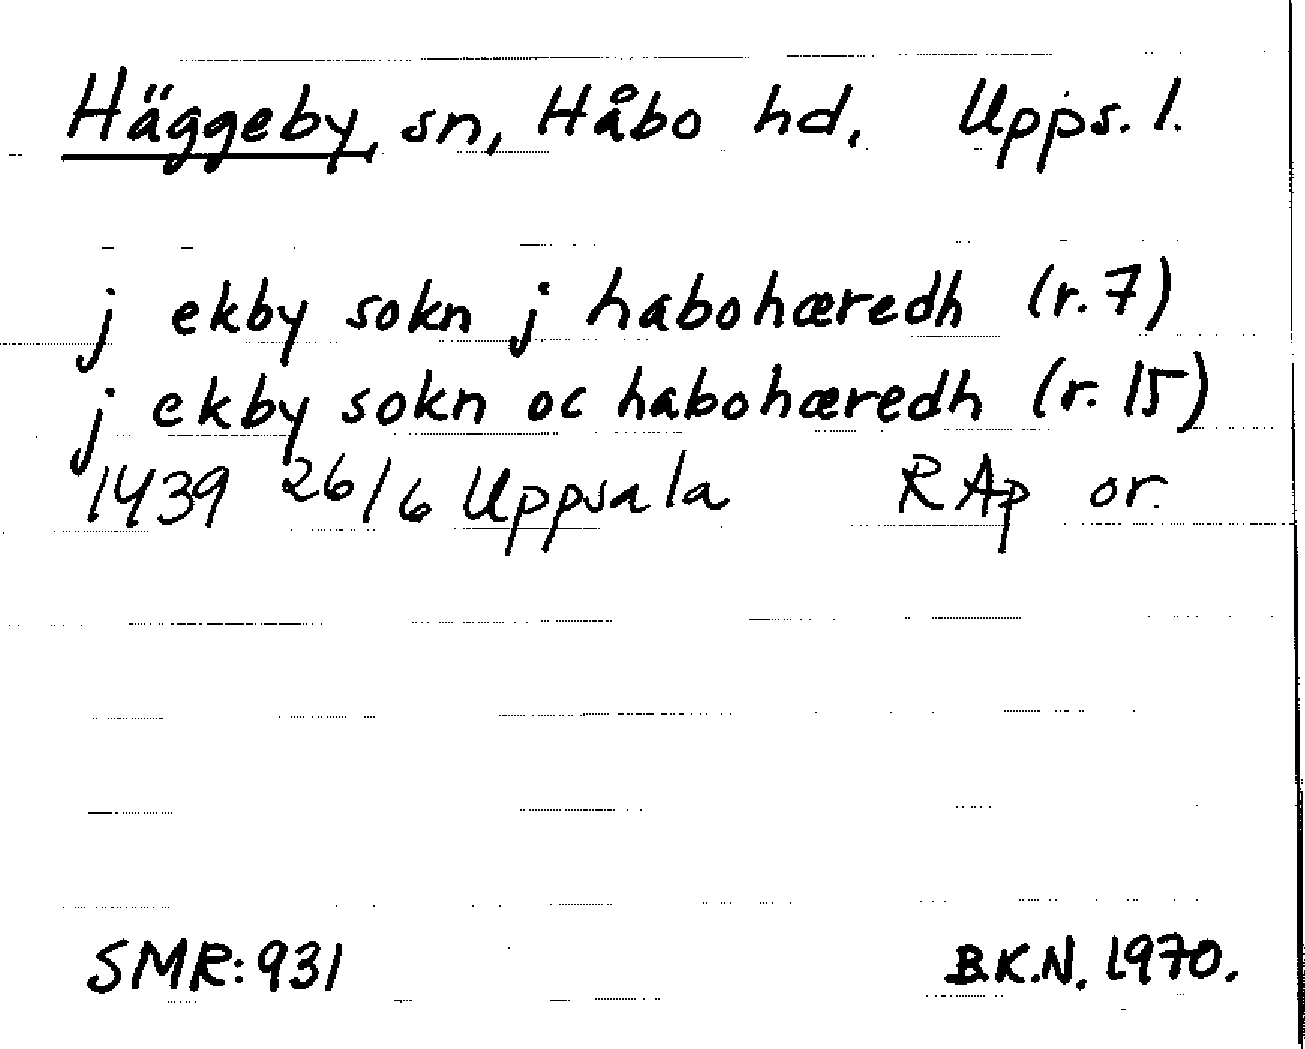 Häggeby, sn, Håbo hd. Upps. l.
j ekby sokn j habohæredh (r. 7)
j ekby sokn oc habohæredh (r. 15)
1439 26/6 Uppsala RAp or.
SMR: 931 B.K.N. 1970.